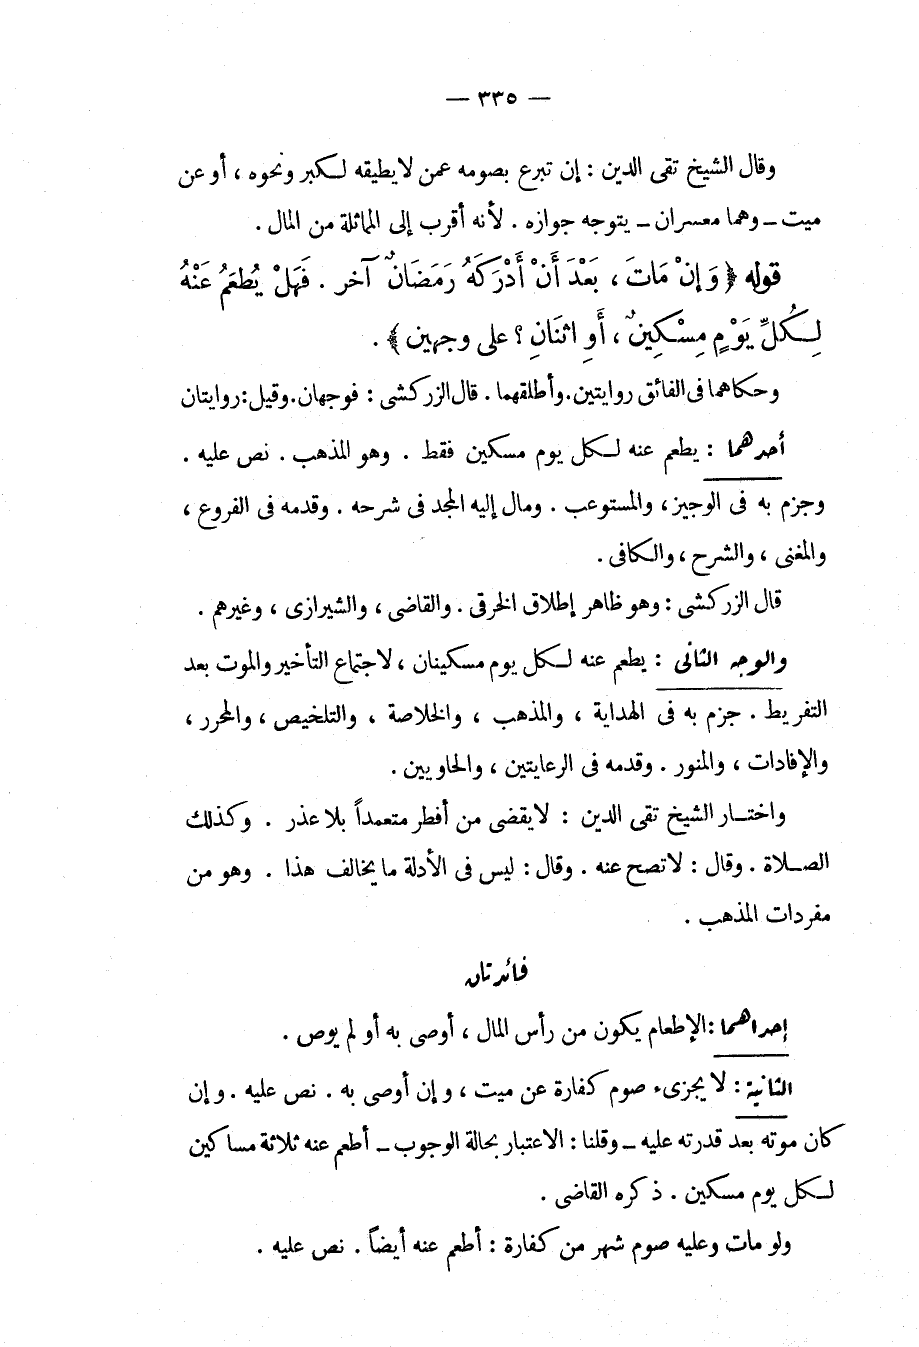 — ٣٣٥ —
وقال الشيخ تقى الدين : إن تبرع بصومه عمن لا يطيقه لكبر ونحوه ، أو عن
ميت ــ وهما معسران ــ يتوجه جوازه . لأنه أقرب إلى المماثلة من المال .
قوله ﴿ وَإِنْ مَاتَ ، بَعْدَ أَنْ أَدْرَكَهُ رَمَضَانٌ آخر . فَهَلْ يُطعَمُ عَنْهُ
لِكُلِّ يَوْمٍ مِسْكِينٌ ، أَوِ اثنَانِ ؟ على وجهين ﴾ .
وحكاهما فى الفائق روايتين . وأطلقهما . قال الزركشى : فوجهان . وقيل : روايتان
أحدهما : يطعم عنه لكل يوم مسكين فقط . وهو المذهب . نص عليه .
وجزم به فى الوجيز ، والمستوعب . ومال إليه المجد فى شرحه . وقدمه فى الفروع ،
والمغنى ، والشرح ، والكافى .
قال الزركشى : وهو ظاهر إطلاق الخرقى . والقاضى ، والشيرازى ، وغيرهم .
والوجه الثانى : يطعم عنه لكل يوم مسكينان ، لاجتماع التأخير والموت بعد
التفريط . جزم به فى الهداية ، والمذهب ، والخلاصة ، والتلخيص ، والمحرر ،
والإفادات ، والمنور . وقدمه فى الرعايتين ، والحاويين .
واختار الشيخ تقى الدين : لا يقضى من أفطر متعمداً بلا عذر . وكذلك
الصلاة . وقال : لا تصح عنه . وقال : ليس فى الأدلة ما يخالف هذا . وهو من
مفردات المذهب .
فائدتان
إحداهما : الإطعام يكون من رأس المال ، أوصى به أو لم يوص .
الثانية : لا يجزىء صوم كفارة عن ميت ، وإن أوصى به . نص عليه . وإن
كان موته بعد قدرته عليه ــ وقلنا : الاعتبار بحالة الوجوب ــ أطعم عنه ثلاثة مساكين
لكل يوم مسكين . ذكره القاضى .
ولو مات وعليه صوم شهر من كفارة : أطعم عنه أيضاً . نص عليه .